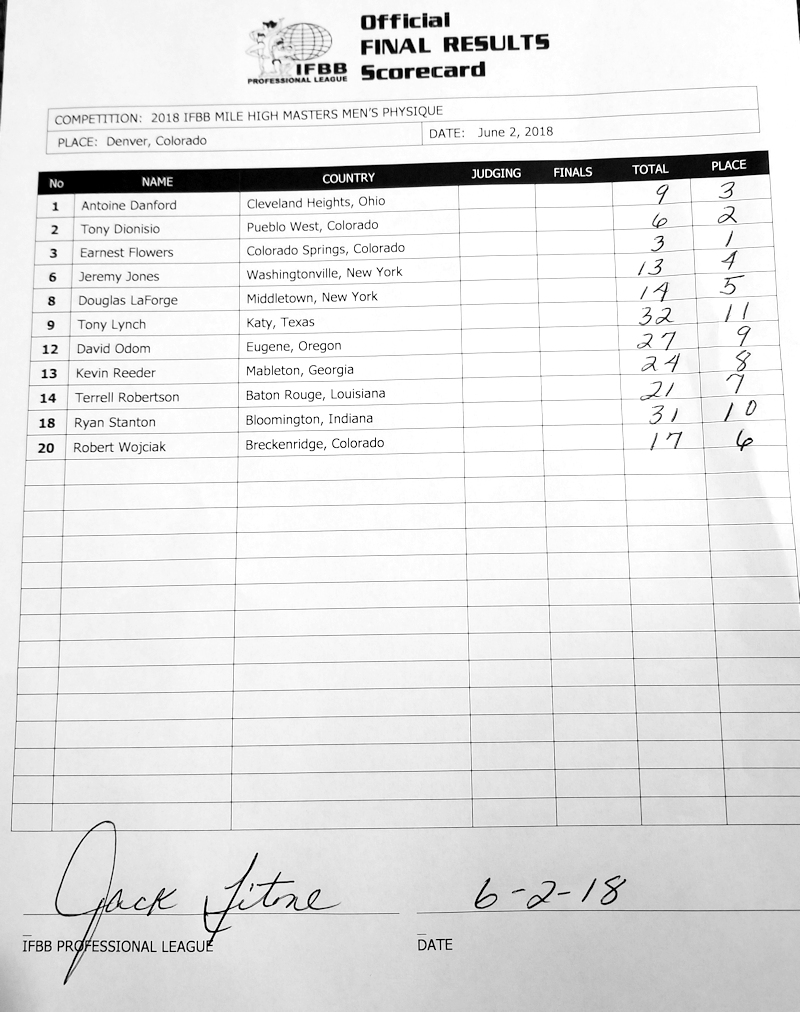 Official
FINAL RESULTS
Scorecard
IFBB
PROFESSIONAL LEAGUE
COMPETITION: 2018 IFBB MILE HIGH MASTERS MEN'S PHYSIQUE
PLACE: Denver, Colorado DATE: June 2, 2018
No NAME COUNTRY JUDGING FINALS TOTAL PLACE
1 Antoine Danford Cleveland Heights, Ohio 9 3
2 Tony Dionisio Pueblo West, Colorado 6 2
3 Earnest Flowers Colorado Springs, Colorado 3 1
6 Jeremy Jones Washingtonville, New York 13 4
8 Douglas LaForge Middletown, New York 14 5
9 Tony Lynch Katy, Texas 32 11
12 David Odom Eugene, Oregon 27 9
13 Kevin Reeder Mableton, Georgia 24 8
14 Terrell Robertson Baton Rouge, Louisiana 21 7
18 Ryan Stanton Bloomington, Indiana 31 10
20 Robert Wojciak Breckenridge, Colorado 17 6
Jack Titone 6-2-18
IFBB PROFESSIONAL LEAGUE DATE